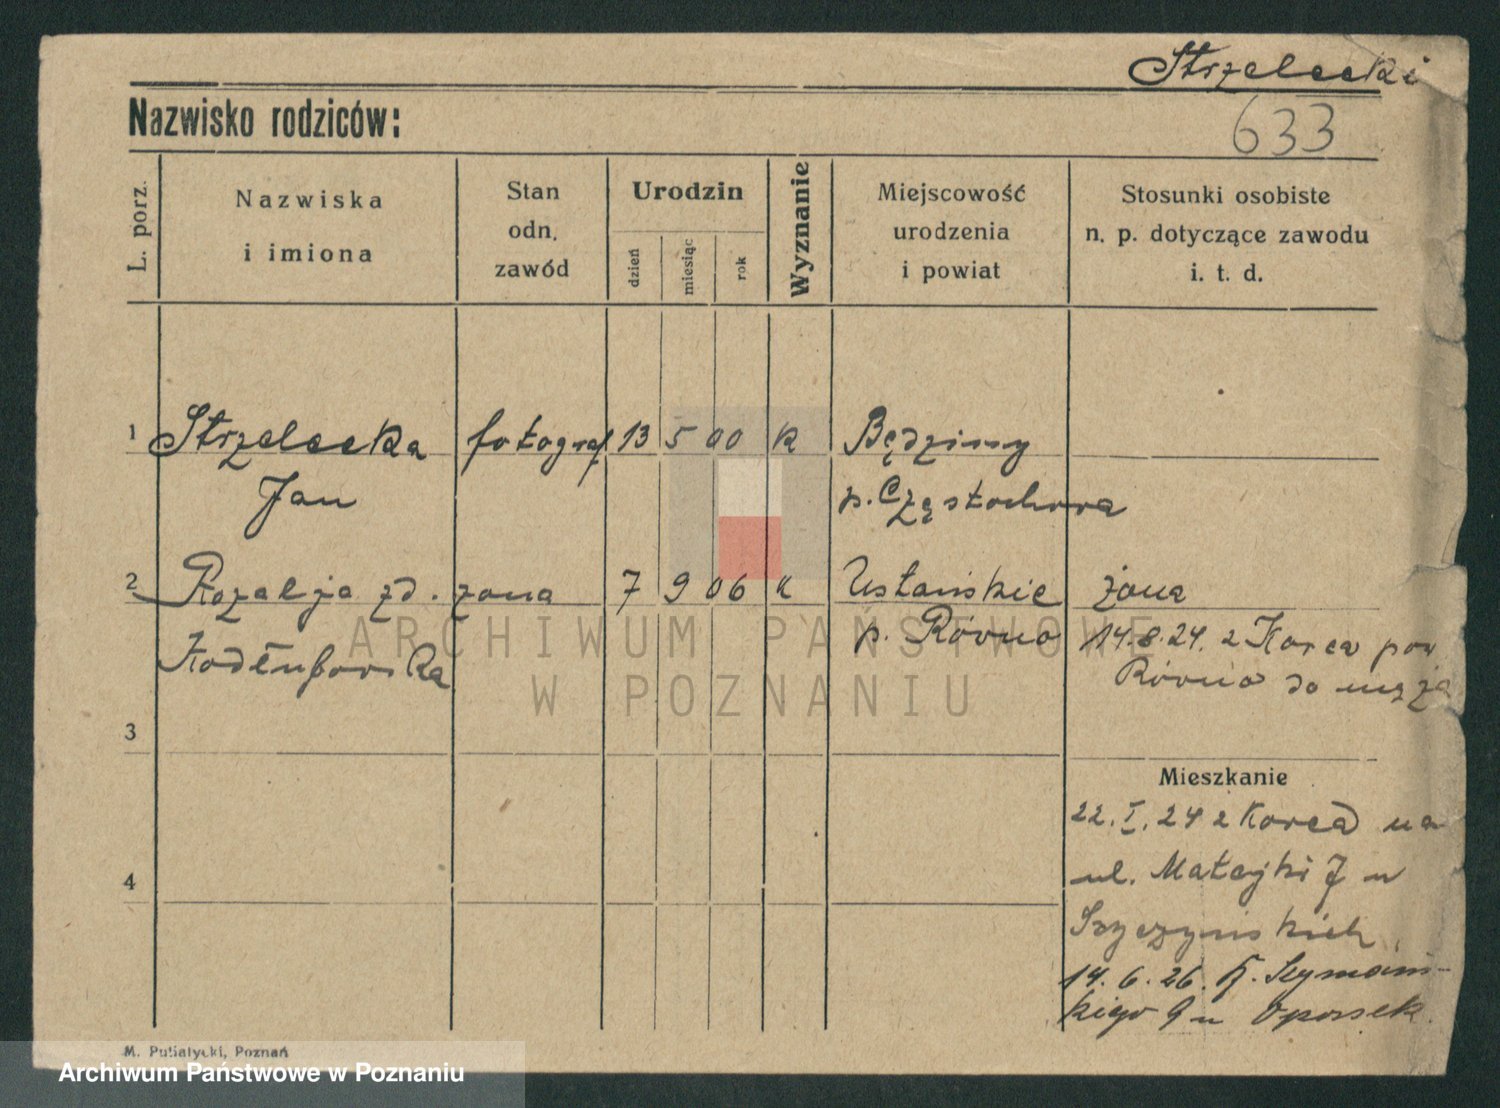 Strzelecki
Nazwisko rodziców:
633
L. porz.
Nazwiska
i imiona
Stan
odn.
zawód
Urodzin
dzień
miesiąc
rok
Wyznanie
Miejscowość
urodzenia
i powiat
Stosunki osobiste
n. p. dotyczące zawodu
i. t. d.
1 Strzelecka fotograf 13 5 00 K Będziny
Jan p. Częstochowa
2 Rozalja zd. żona 7 9 06 K Ustańskie żona
p. Równo 14.8.24. z Korca pow
Kodłuborska Równo do męża
3
Mieszkanie
22.I.24 z Korca na
4
ul. Matejki 7 u
Szyczyńskich
14.6.26.
kiego 9 u
M. Putiatycki, Poznań
ARCHIWUM PAŃSTWOWE
W POZNANIU
Archiwum Państwowe w Poznaniu